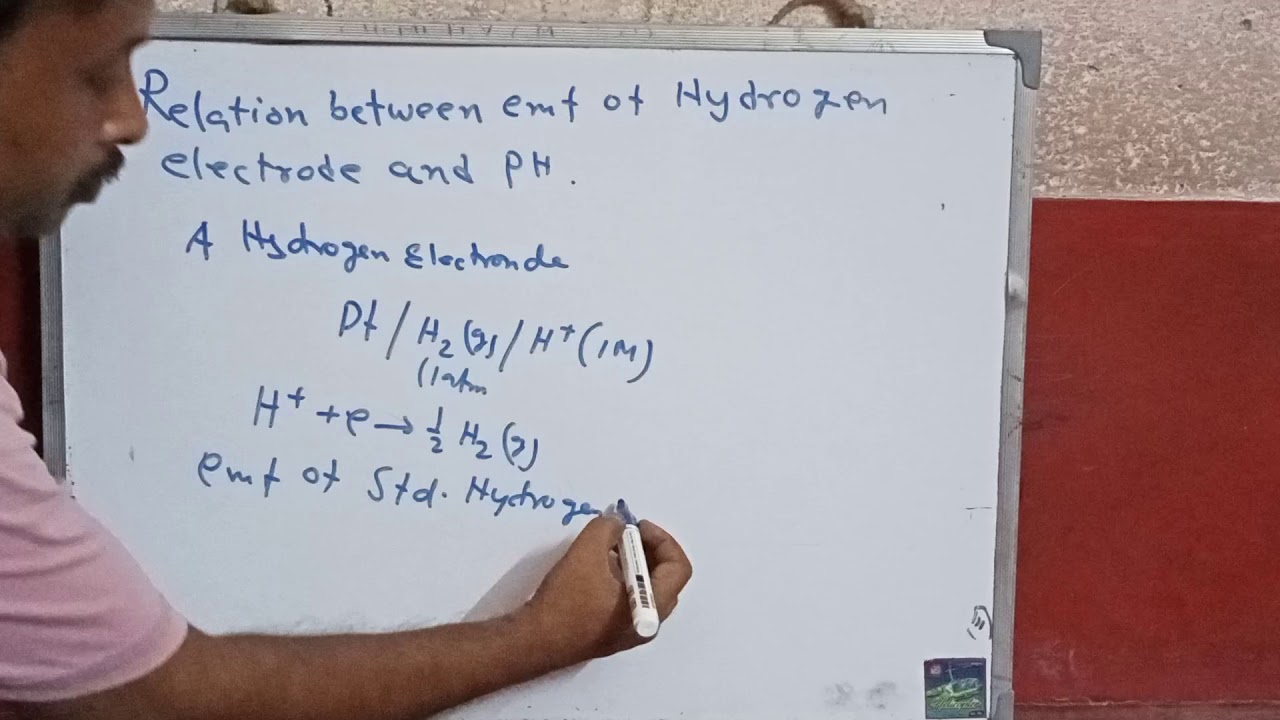 Relation between emf of Hydrogen
electrode and PH.
A Hydrogen Electronde
Pt / H₂(g) / H⁺(1M)
(1atm
H⁺ + e → 1/2 H₂(g)
emf of Std. Hydrogen